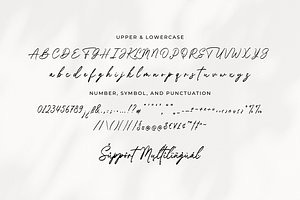 UPPER & LOWERCASE
A B C D E F G H I J K L M N O P Q R S T U V W X Y Z
a b c d e f g h i j k l m n o p q r s t u v w x y z
NUMBER, SYMBOL, AND PUNCTUATION
0123456789
Support Multilingual